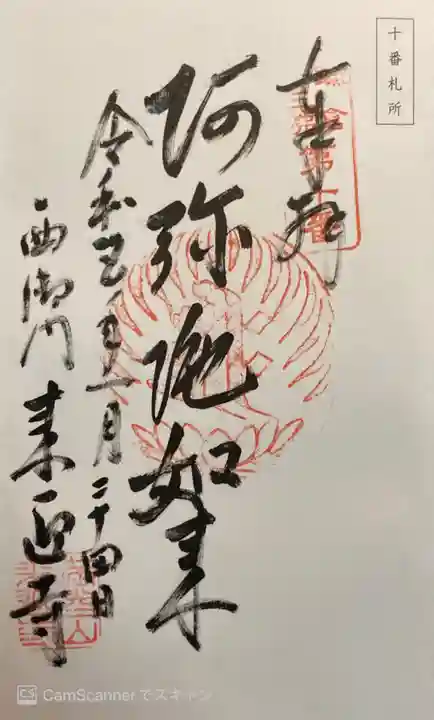 十番札所
奉拝
第十番
阿弥陀如来
令和 月二十四日
西御門 来迎寺
CS CamScannerでスキャン